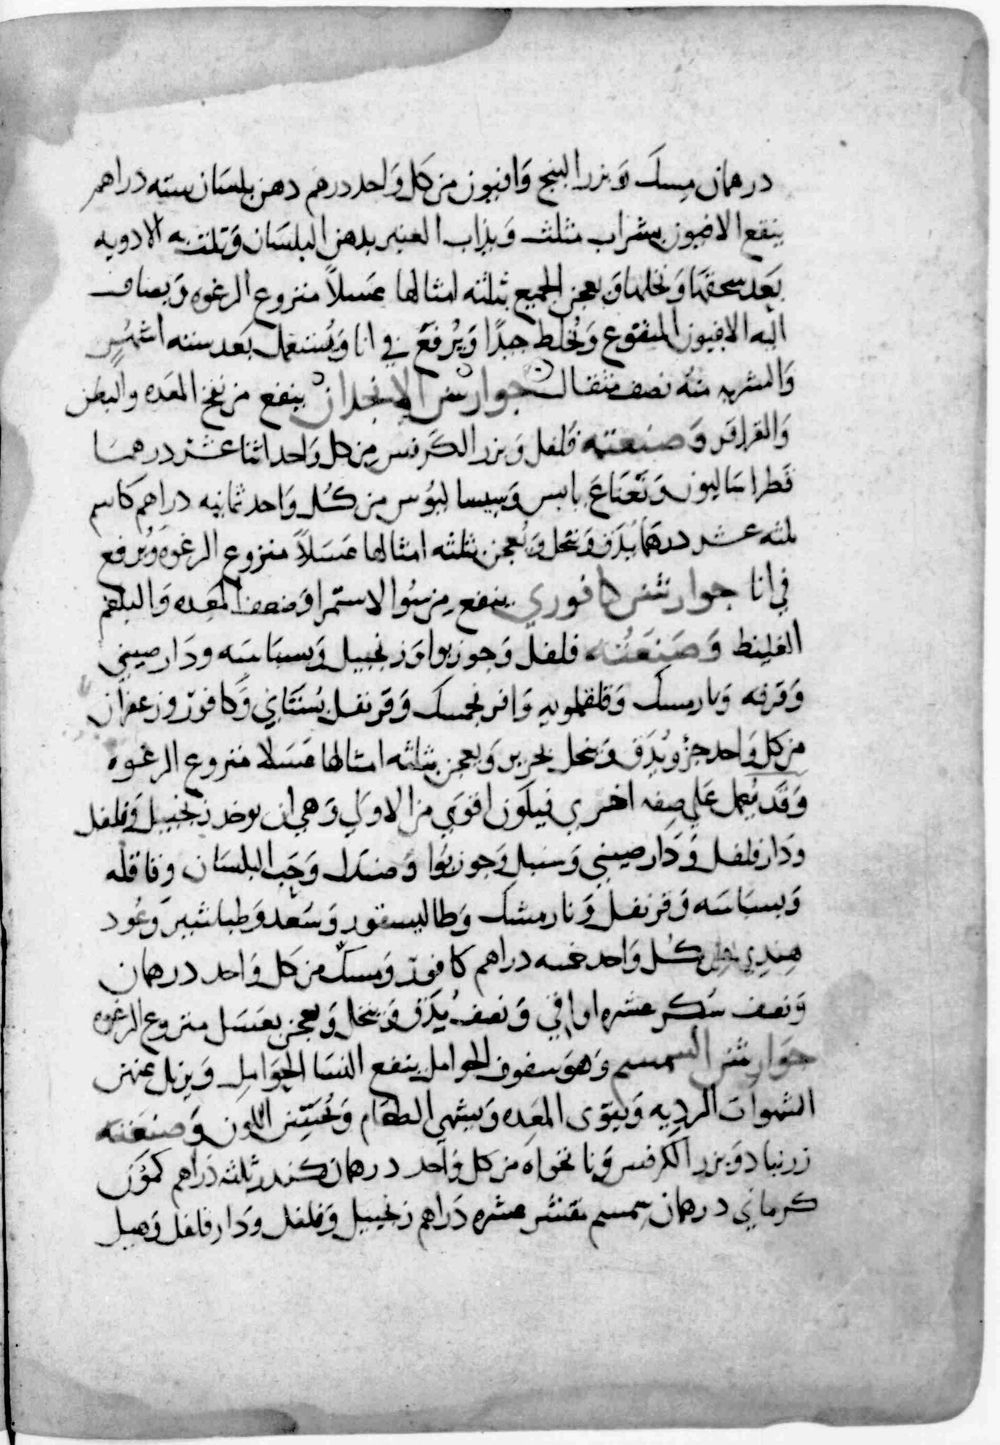 درهمان مسك وبزر البنج وافيون من كل واحد درهم دهن بلسان سته دراهم
ينقع الافيون بشراب مثلث ويذاب العنبر بدهن البلسان وتلت به الادويه
بعد سحقها ونخلها ويعجن الجميع بثلثه امثالها عسلاً منزوع الرغوه ويضاف
اليه الافيون المنقوع ويخلط جيدًا ويُرفع في انا ويُستعمل بعد سته اشهُر
والشربه منه نصف مثقال جوارشن الانجدان ينفع من نفخ المعده والبطن
والقراقر وصنعته فلفل وبزر الكرفس من كل واحد اثنا عشر درهما
فطراساليون ونَعناع يابس وسيساليوس من كُل واحد ثمانيه دراهم كاشم
ثلثه عشر درهما يُدق وينخل ويُعجن بثلثه امثالها عسَلاً منزوع الرغوه ويُرفع
في انا جوارشن كافوري ينفع من سُوا الاستمرا وضعف المعده والبلغم
الغليظ وصَنعَته فلفل وجوزبوا وزنجبيل وبسباسه ودار صيني
وقرفه ونارمسك وقلقلمويه وافرنجمسك وقرنفل بُستاني وكافور وزعفران
من كل واحد جزو يُدق وينخل بحرير ويعجن بثلثه امثالها عسَلا منزوع الرغوه
وقد يُعمل على صفه اخرى فيكون اقوى من الاولى وهي ان يوخد زنجبيل وفلفل
ودارفلفل ودار صيني وسنبل وجوزبُوا وصندل وحَب البلسان وقاقله
وبسباسه وقرنفل ونارمشك وطاليسفور وسَعد وطباشير وعُود
هندي من كُل واحد خمسه دراهم كافور ومسك من كل واحد درهمان
ونصف سُكر عشره اواقي ونصف يُدق وينخل ويعجن بعَسَل منزوع الرغوه
جوارشن السمسم وهو سفوف الحوامل ينفع النسا الحوَامل ويزيل عنهن
الشهوات الرديه ويقوي المعده ويشهي الطعام ويُحَسِّن اللون وصنعَته
زرنباد وبزر الكرفس ونانخواه من كل واحد درهمان كندر ثلثه دراهم كمون
كرماني درهمان سمسم مقشر عشره دَراهم زنجبيل وفلفل ودار فلفل وهيل